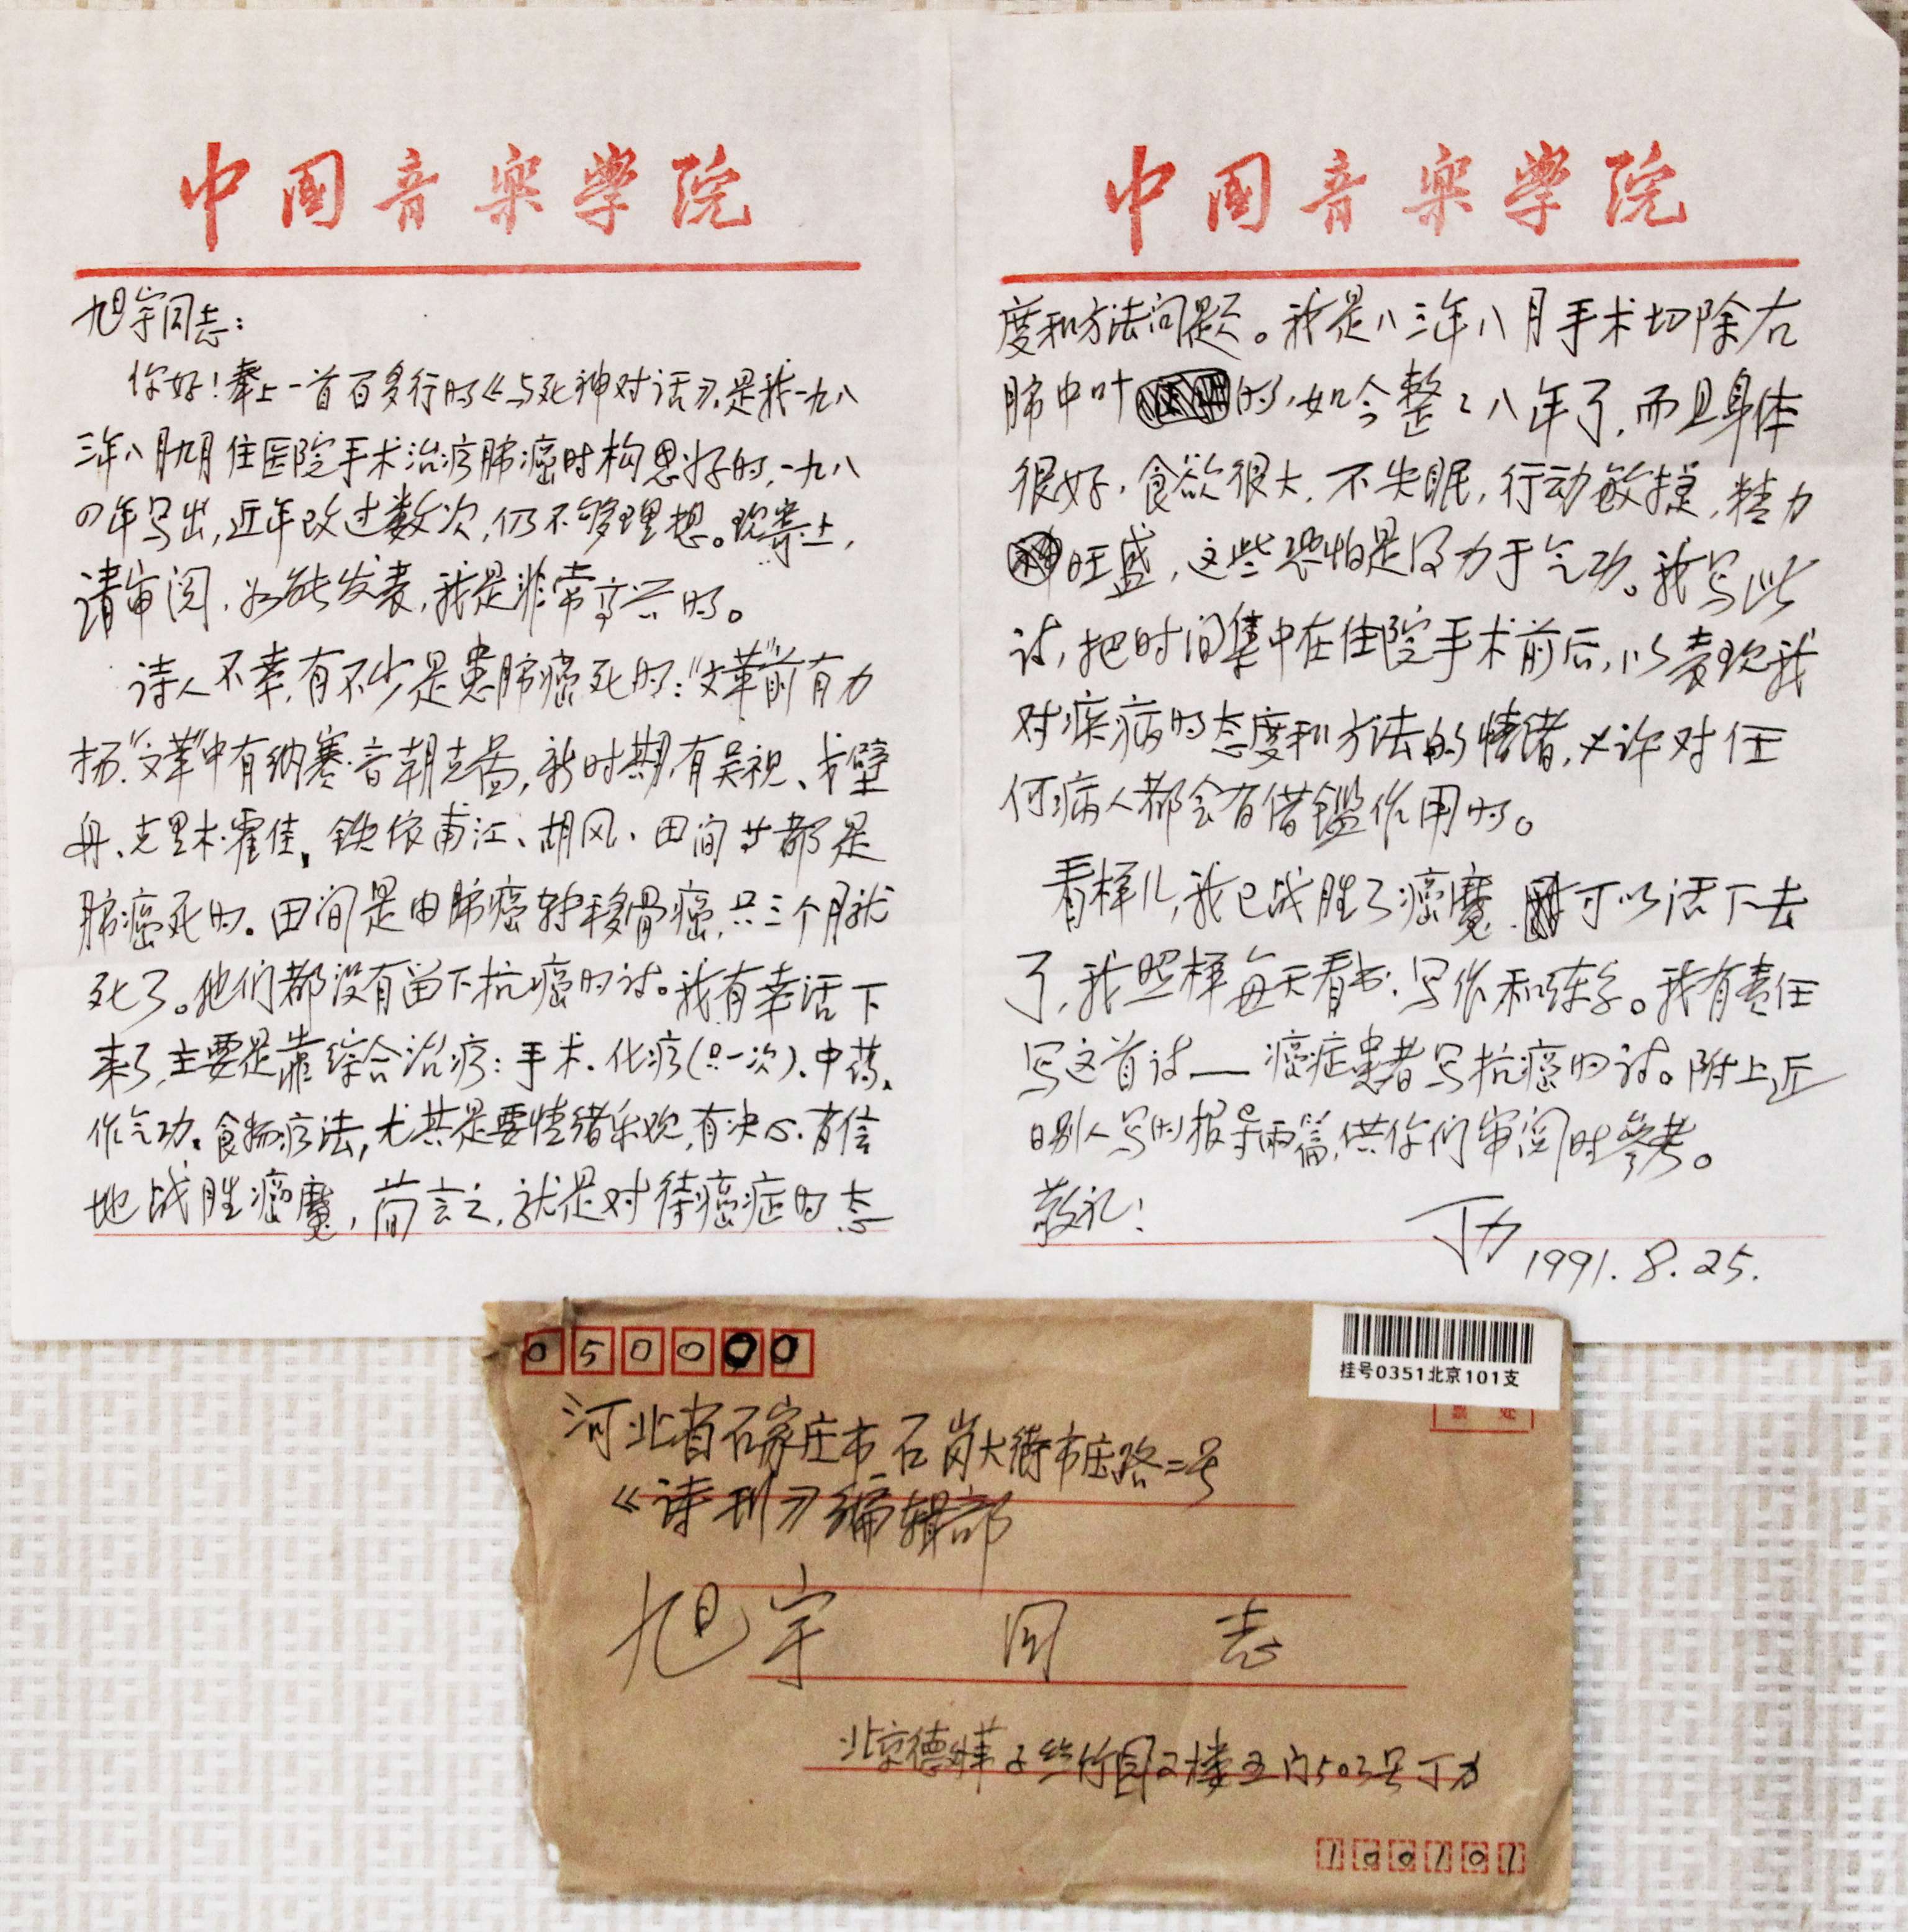 中国音乐学院
旭宇同志：
你好！奉上一首百多行的《与死神对话》，是我一九八
三年八月九月住医院手术治疗肺癌时构思好的，一九八
四年写出，近年改过数次，仍不够理想。现寄上，
请审阅，如能发表，我是非常高兴的。
诗人不幸，有不少是患肺癌死的："文革"前有力
扬，"文革"中有纳·赛音朝克图，新时期有吴视、戈壁
舟、克里木·霍佳、铁依甫江、胡风、田间等都是
肺癌死的。田间是由肺癌转移骨癌，只三个月就
死了。他们都没有留下抗癌的诗。我有幸活下
来了，主要是靠综合治疗：手术、化疗（只一次）、中药、
作气功、食物疗法，尤其是要情绪乐观，有决心、有信
地战胜癌魔，简言之，就是对待癌症的态
中国音乐学院
度和方法问题。我是八三年八月手术切除右
肺中叶的，如今整整八年了，而且身体
很好，食欲很大，不失眠，行动敏捷，精力
旺盛，这些恐怕是得力于气功。我写此
诗，把时间集中在住院手术前后，以表现我
对疾病的态度和方法的情绪，也许对任
何病人都会有借鑑作用的。
看样儿，我已战胜了癌魔，可以活下去
了，我照样每天看书、写作和练字。我有责任
写这首诗——癌症患者写抗癌的诗。附上近
日别人写的报导两篇，供你们审阅时参考。
敬礼！
丁力 1991.8.25.
050000
挂号0351北京101支
河北省石家庄市石岗大街市庄路二号
《诗刊》编辑部
旭宇 同志
北京德外苇子丝竹园2楼五门503号丁力
100101